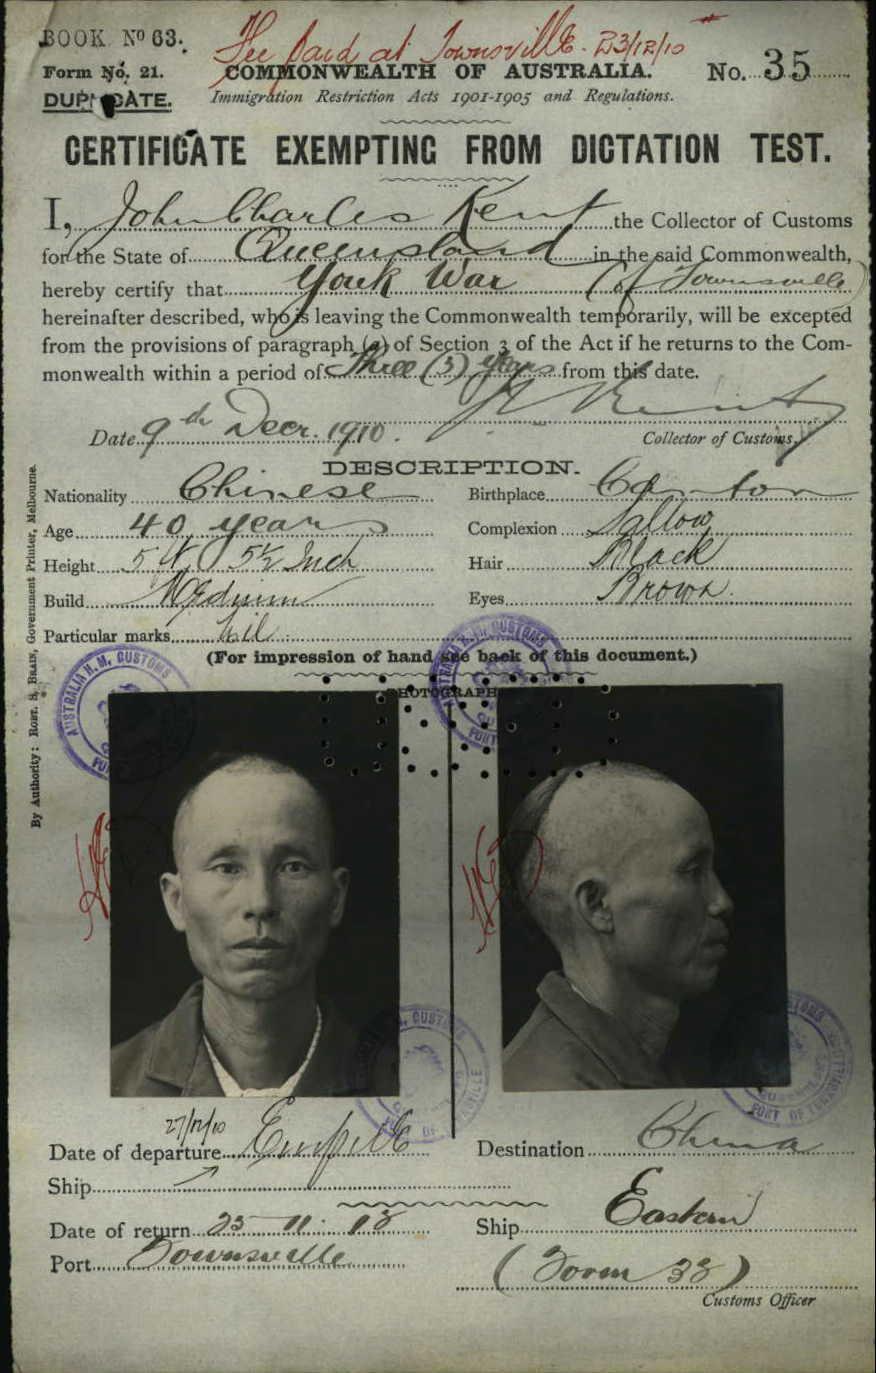 BOOK Nº 63.
Fee paid at Townsville. 23/12/10
Form No. 21.
COMMONWEALTH OF AUSTRALIA.
No. 35
DUPLICATE.
Immigration Restriction Acts 1901-1905 and Regulations.
CERTIFICATE EXEMPTING FROM DICTATION TEST.
I, John Charles Kent the Collector of Customs
for the State of Queensland in the said Commonwealth,
hereby certify that Youk War (of Townsville)
hereinafter described, who is leaving the Commonwealth temporarily, will be excepted
from the provisions of paragraph (a) of Section 3 of the Act if he returns to the Com-
monwealth within a period of Three (3) years from this date.
Date 9th Decr. 1910.
Collector of Customs.
DESCRIPTION.
Nationality Chinese
Birthplace Canton
Age 40 years
Complexion Sallow
Height 5 ft 5½ Inch
Hair Black
Build Medium
Eyes Brown.
Particular marks Nil
(For impression of hand see back of this document.)
PHOTOGRAPH
By Authority: ROBT. S. BRAIN, Government Printer, Melbourne.
AUSTRALIA H. M. CUSTOMS
PORT OF TOWNSVILLE
27/12/10
Date of departure Empire
Destination China
Ship
Date of return 25-11-13
Ship Eastern
Port Townsville
(Form 32)
Customs Officer